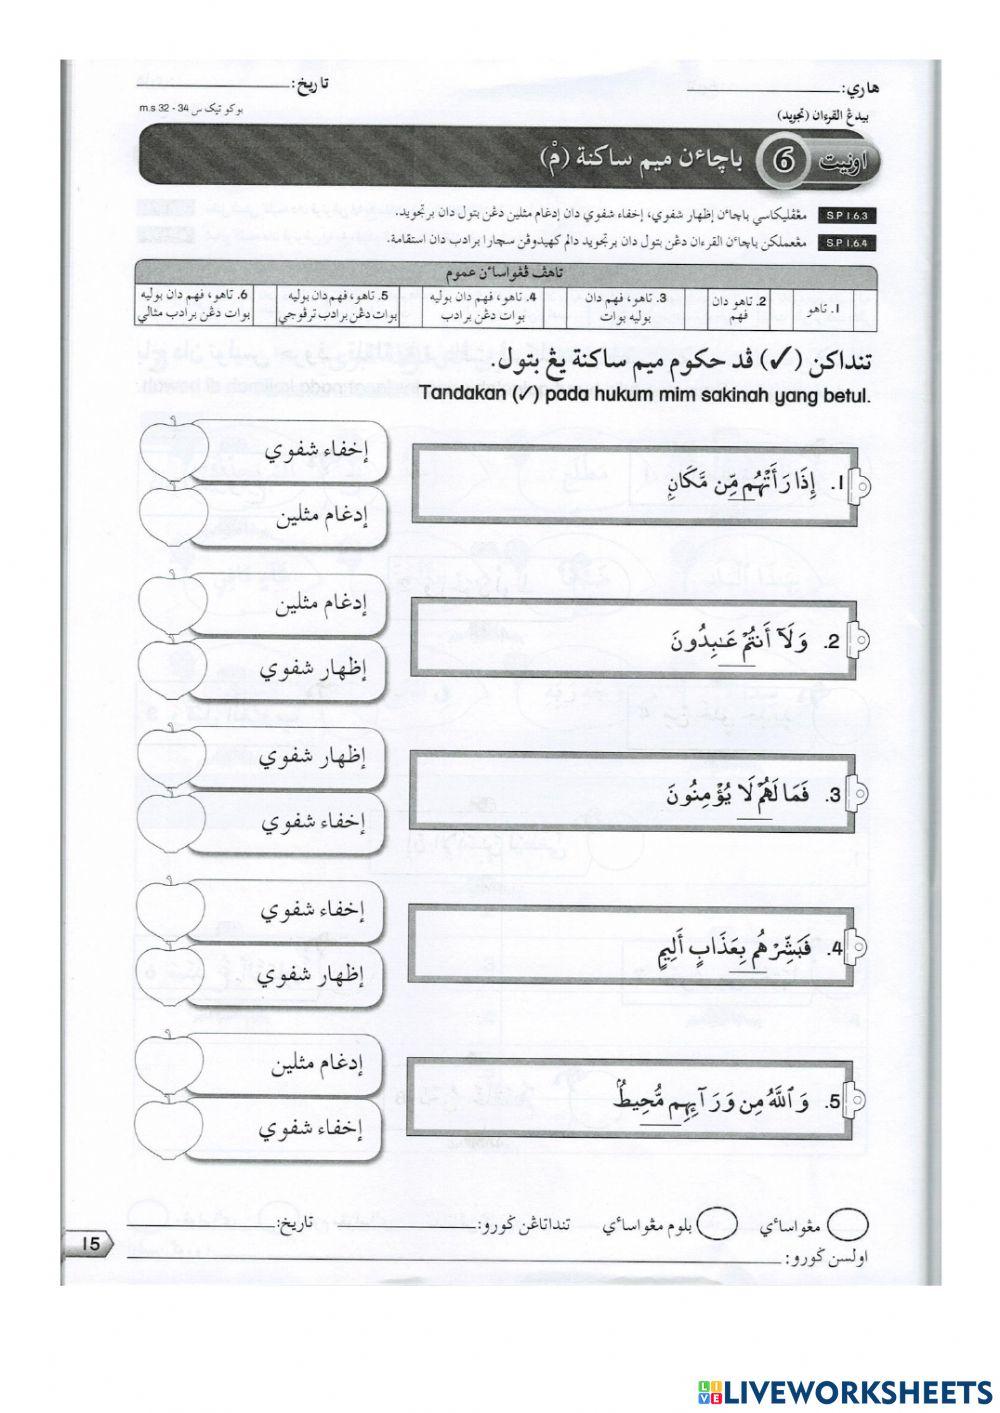 هاري: ____________ تاريخ: ____________
بيدڠ القرءان (تجويد) بوكو تيک س 34 - 32 m.s
اونيت 6 باچاءن ميم ساكنة (مْ)
S.P 1.6.3 مڠڤليکاسي باچاءن إظهار شفوي، إخفاء شفوي دان إدغام مثلين دڠن بتول دان برتجويد.
S.P 1.6.4 مڠعملکن باچاءن القرءان دڠن بتول دان برتجويد دالم کهيدوڤن سچارا برادب دان استقامة.
تاهڤ ڤڠواساءن عموم
1. تاهو
2. تاهو دان فهم
3. تاهو، فهم دان بوليه بوات
4. تاهو، فهم دان بوليه بوات دڠن برادب
5. تاهو، فهم دان بوليه بوات دڠن برادب ترڤوجي
6. تاهو، فهم دان بوليه بوات دڠن برادب مثالي
تنداکن (✓) ڤد حکوم ميم ساکنة يڠ بتول.
Tandakan (✓) pada hukum mim sakinah yang betul.
1. إِذَا رَأَتْهُم مِّن مَّكَانٍ
إخفاء شفوي
إدغام مثلين
2. وَلَآ أَنتُمْ عَـٰبِدُونَ
إدغام مثلين
إظهار شفوي
3. فَمَا لَهُمْ لَا يُؤْمِنُونَ
إظهار شفوي
إخفاء شفوي
4. فَبَشِّرْهُم بِعَذَابٍ أَلِيمٍ
إخفاء شفوي
إظهار شفوي
5. وَٱللَّهُ مِن وَرَآئِهِم مُّحِيطٌ
إدغام مثلين
إخفاء شفوي
مڠواساءي بلوم مڠواساءي تنداتاڠن ݢورو: ____________ تاريخ: ____________
اولسن ݢورو: ____________
15
LIVEWORKSHEETS